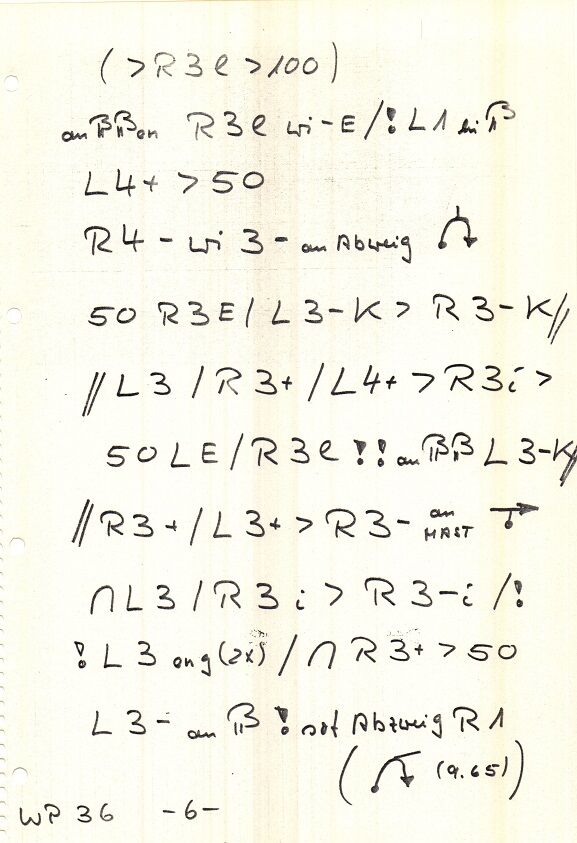 (>R3l>100)
an on R3l wi-E/!L1 bei
L4+ >50
R4- wi 3- an Abweig
50 R3E/L3-K> R3-K//
//L3/R3+/L4+>R3i>
50LE/R3l!!an L3-K//
//R3+/L3+>R3- an MAST
∩L3/R3i>R3-i/!
!L3 eng(2x)/∩R3+>50
L3- an ! sof Abzweig R1
((9.65))
WP 36 -6-